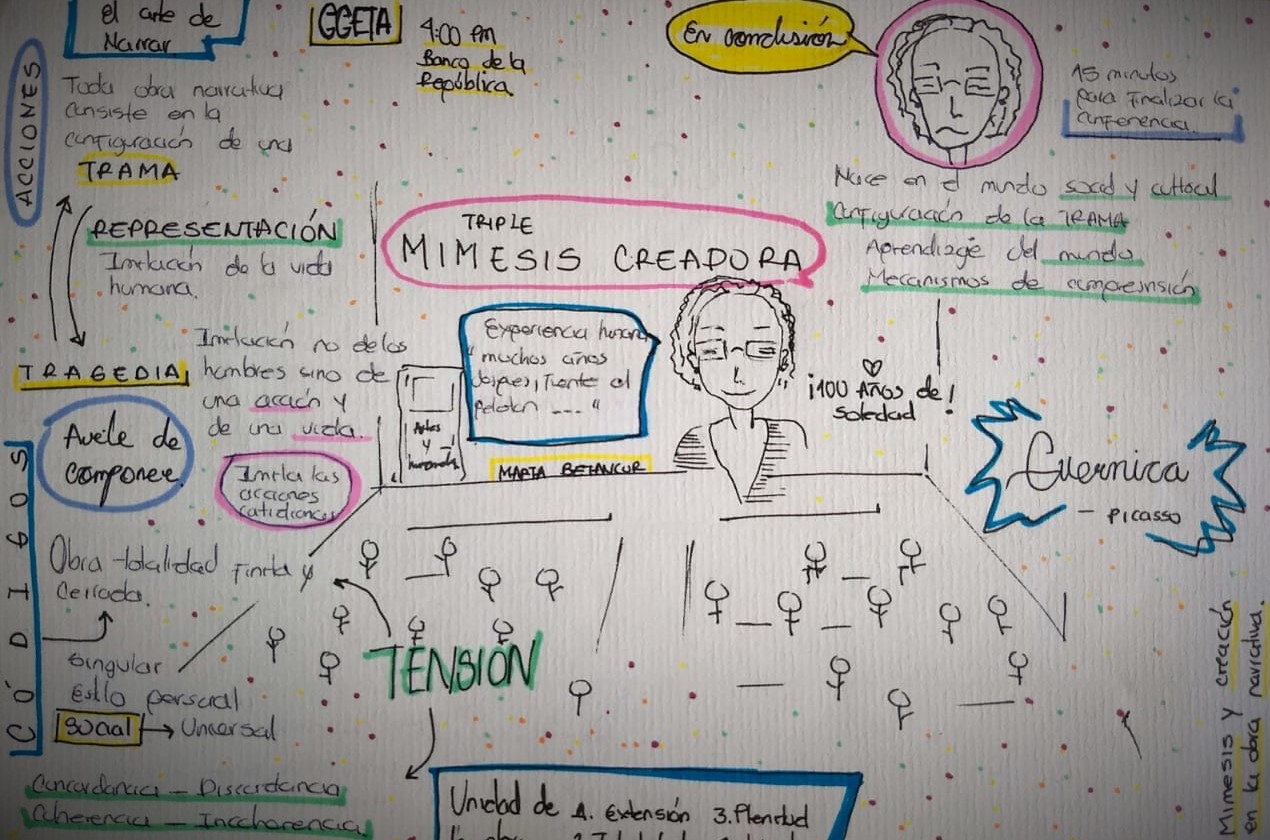 el arte de
Narrar
GGETA
4:00 Pm
Banco de la
República
En conclusión
15 minutos
para finalizar la
conferencia
ACCIONES
Toda obra narrativa
consiste en la
configuración de una
TRAMA
REPRESENTACIÓN
Imitación de la vida
humana.
TRIPLE
MIMESIS CREADORA
Nace en el mundo social y cultural
Configuración de la TRAMA
Aprendizaje del mundo
Mecanismos de comprensión
TRAGEDIA
Imitación no de los
hombres sino de
una acción y
de una vida.
Experiencia humana
"muchos años
frente al
peloton ---- "
¡100 AÑOS de!
Soledad
Artes
y
MARTA BETANCUR
de
componer
Imita las
acciones
cotidianas
Guernica
- PICASSO
CÓDIGOS
Obra totalidad Finita y
Cerrada.
TENSIÓN
Singular
Estilo personal
Social → Universal
Concordancia - Discordancia
Coherencia - Incoherencia
Unidad de 1. Extensión 3. Plenitud
Mimesis y creación
en la obra narrativa.